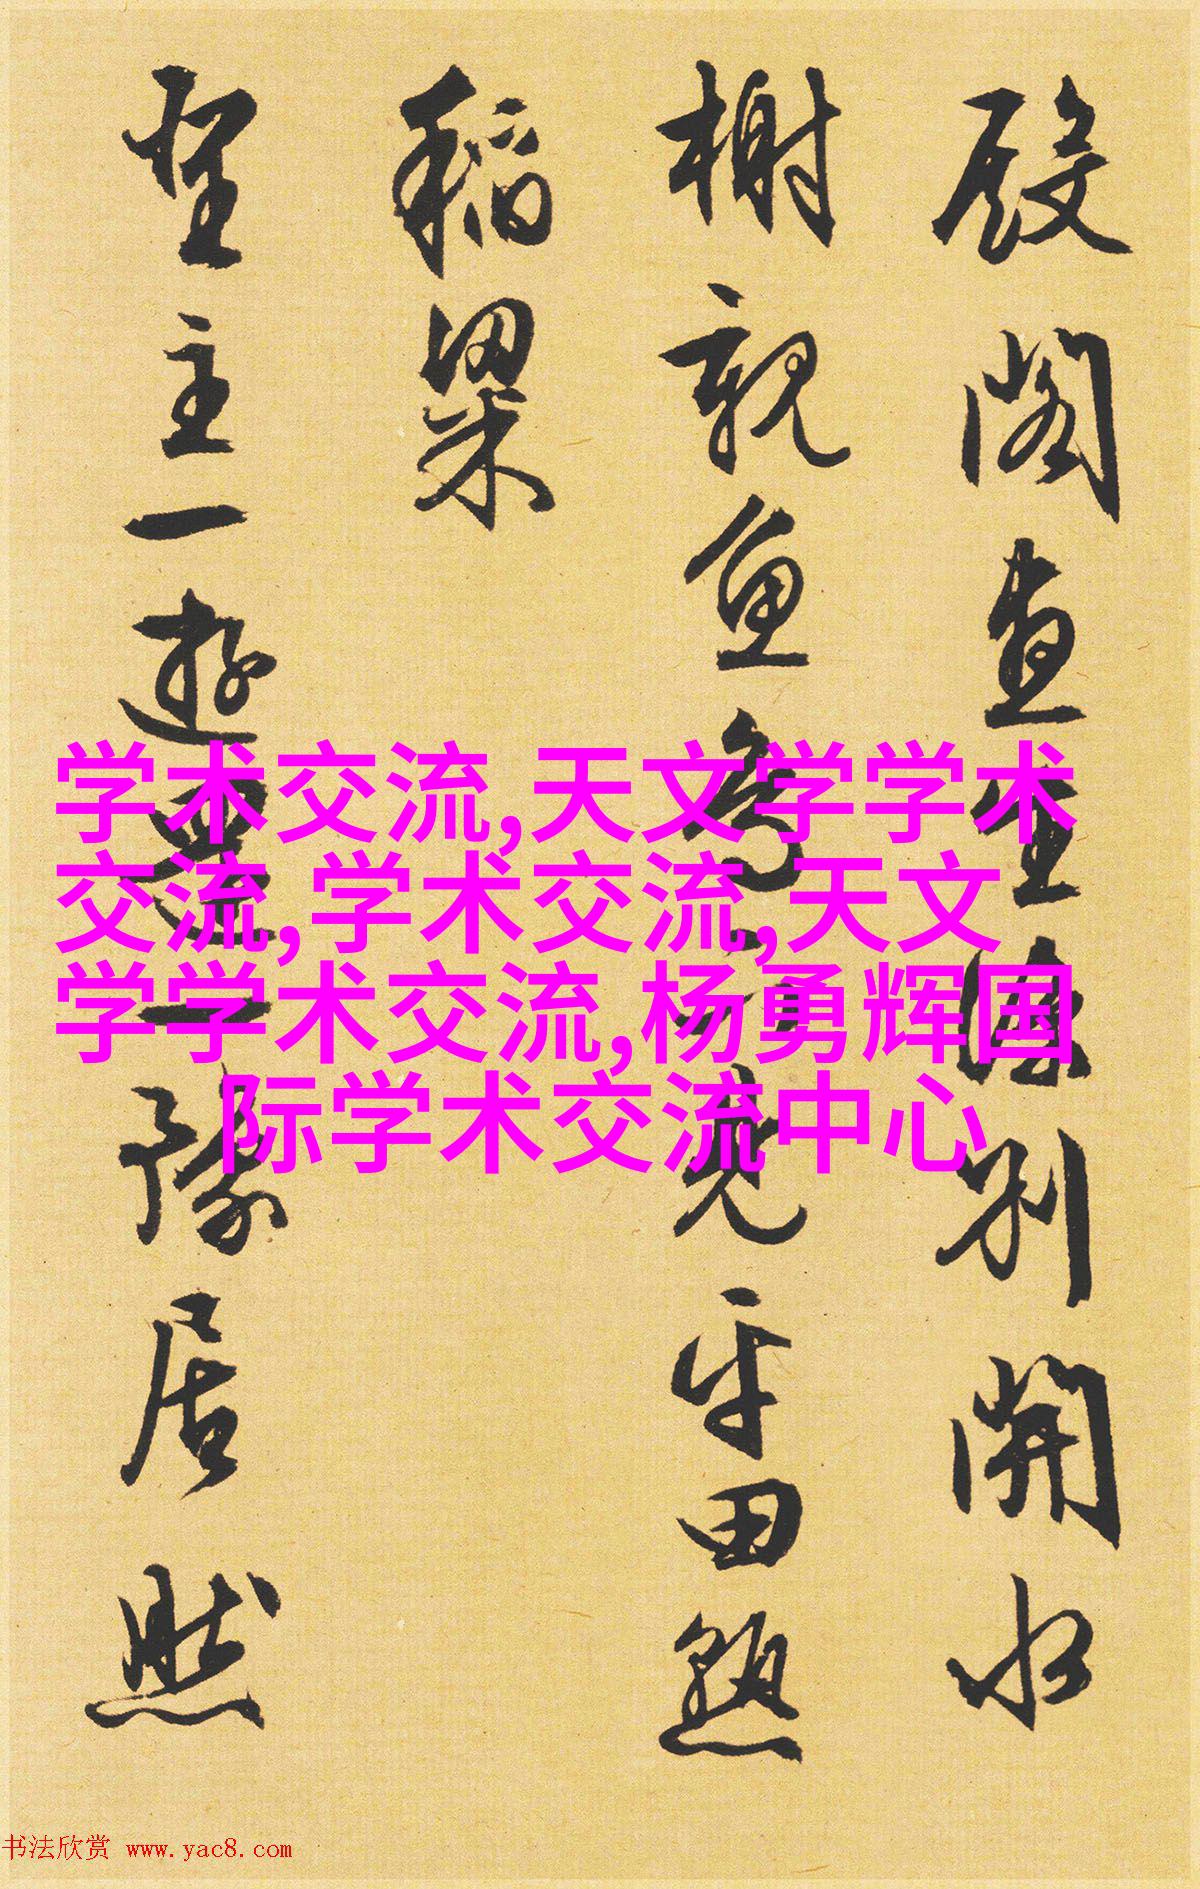 殿閣生涼别開水
榭親魚鳥下覽平田熟
稻粱
聖主一遊還一豫居然
学术交流,天文学学术
交流,学术交流,天文
学学术交流,杨勇辉国
际学术交流中心
书法欣赏 www.yac8.com